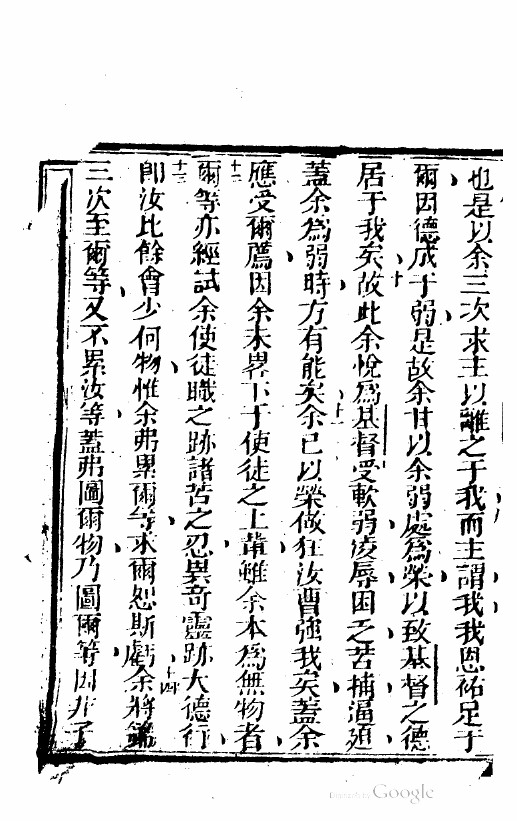 也是以余三次求主以離之于我而主謂我我恩祐足于
爾因德成于弱是故余甘以余弱處爲榮以致基督之德
十
居于我矣故此余悅爲基督受軟弱凌辱困乏苦捕逼
蓋余爲弱時方有能矣余已以榮做狂汝曹強我矣蓋余
十一
應受爾薦因余未畧下于使徒之上輩雖余本爲無物者
十二
爾等亦經試余使徒職之跡諸苦之忍異奇靈跡大德行
十三
卽汝比餘會少何物惟余弗累爾等求爾恕斯虧余將
十四
三次至爾等又不累汝等蓋弗圖爾物乃圖爾等因
Google